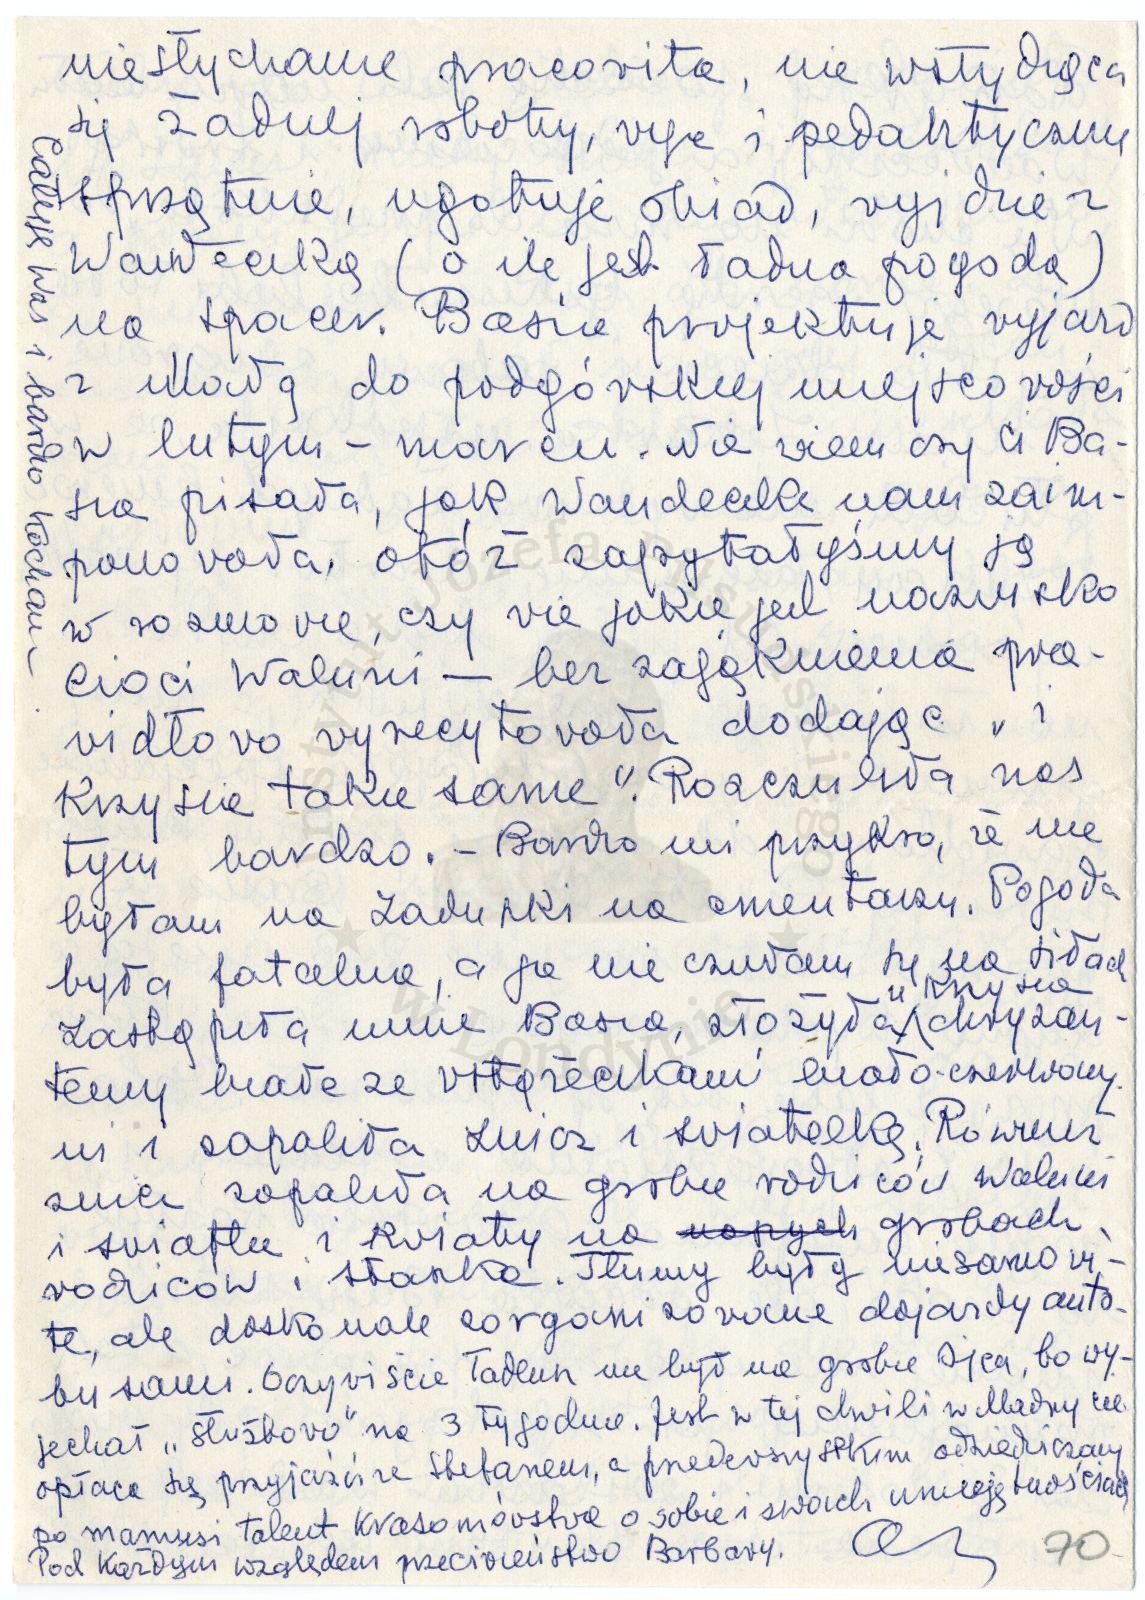 niesłychanie pracowita, nie wstydząca
się żadnej roboty, wyje i pedantycznie
sprzątnie, ugotuje obiad, wyjdzie z
Wandeczką (o ile jest ładna pogoda)
na spacer. Basia projektuje wyjazd
z Małą do podgórskiej miejscowości
w lutym – marcu. Nie wiem czy Ci Ba-
sia pisała, jak Wandeczka nam zaim-
ponowała, otóż zapytałyśmy ją
w rozmowie, czy wie jakie jest nazwisko
Cioci Waluni — bez zająknienia pra-
widłowo wyrecytowała dodając „i
Krzysia takie same". Rozczuliła nas
tym bardzo. – Bardzo mi przykro, że nie
byłam na Zaduszki na cmentarzu. Pogoda
była fatalna, a ja nie czułam się na siłach
Zastąpiła mnie Basia, złożyła u Krzysia chryzan-
temy białe ze wstążeczkami biało-czerwony-
mi i zapaliła znicz i światełka. Również
znicz zapaliła na grobie rodziców Waluni
i światła i kwiaty na grobach
rodziców i Staszka. Tłumy były niesamowi-
te, ale doskonale zorganizowane dojazdy auto-
busami. Oczywiście Tadeusz nie był na grobie Ojca, bo wy-
jechał „służbowo" na 3 tygodnie. Jest w tej chwili w Madrycie
opłaca się przyjaźń ze Stefanem, a przedewszystkim odziedziczony
po mamusi talent krasomówstwa o sobie i swoich umiejętnościach
Pod każdym względem przeciwieństwo Barbary.
70
Całuję Was i bardzo kocham –
Instytut Józefa Piłsudskiego
w Londynie